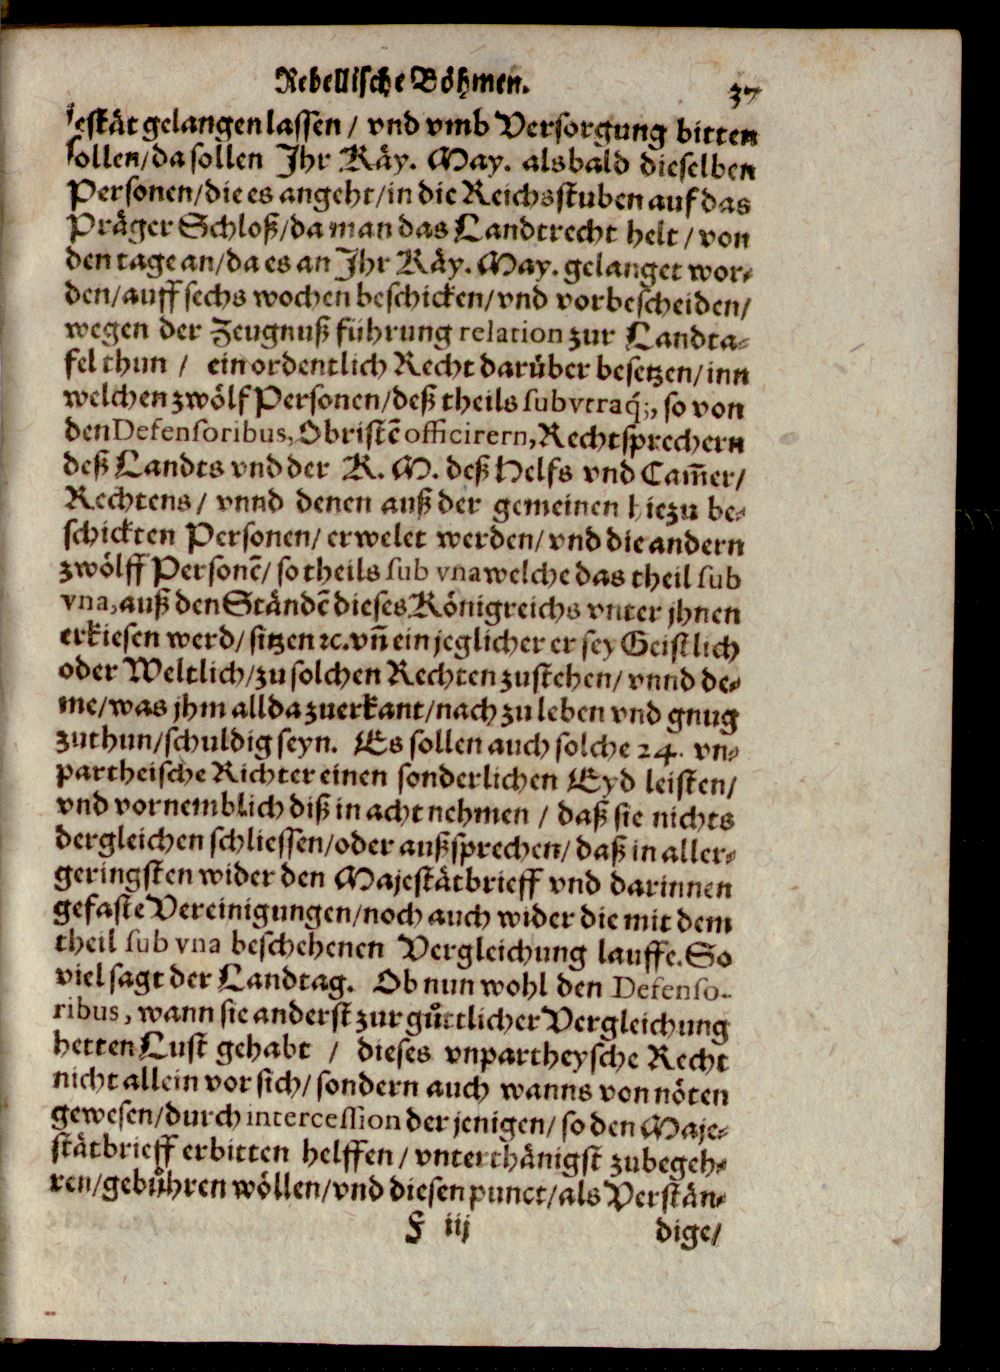 Rebellische Böhmen. 37
jestät gelangen lassen / vnd vmb Versorgung bitten
sollen / da sollen Ihr Käy. May. alsbald dieselben
Personen / die es angeht / in die Reichsstuben auf das
Präger Schloß / da man das Landtrecht helt / von
den tage an / da es an Ihr Käy. May. gelanget wor-
den / auff sechs wochen beschicken / vnd vorbescheiden /
wegen der Zeugnuß führung relation zur Landta-
fel thun / ein ordentlich Recht darüber besetzen / inn
welchen zwölf Personen / deß theils sub vtraq;, so von
den Defensoribus, Obristẽ officirern, Rechtsprechern
deß Landts vnd der K. M. deß Helfs vnd Cam̃er /
Rechtens / vnnd denen auß der gemeinen hiezu be-
schickten Personen / erwelet werden / vnd die andern
zwölff Personẽ / so theils sub vna welche das theil sub
vna, auß den Ständẽ dieses Königreichs vnter jhnen
erkiesen werd / sitzen ꝛc. vñ ein jeglicher er sey Geistlich
oder Weltlich / zu solchen Rechten zustehen / vnnd de-
me / was jhm allda zuerkant / nach zu leben vnd gnug
zuthun / schuldig seyn. Es sollen auch solche 24. vn-
partheische Richter einen sonderlichen Eyd leisten /
vnd vornemblich diß in acht nehmen / daß sie nichts
dergleichen schliessen / oder außsprechen / daß in aller-
geringsten wider den Majestätbrieff vnd darinnen
gefaste Vereinigungen / noch auch wider die mit dem
theil sub vna beschehenen Vergleichung lauffe. So
viel sagt der Landtag. Ob nun wohl den Defenso-
ribus, wann sie anderst zur gůttlicher Vergleichung
hetten Lust gehabt / dieses vnpartheysche Recht
nicht allein vor sich / sondern auch wanns von nöten
gewesen / durch intercession der jenigen / so den Maje-
stätbrieff erbitten helffen / vnterthänigst zubegeh-
ren / gebůhren wöllen / vnd diesen punct / als Verstän-
F iij dige /